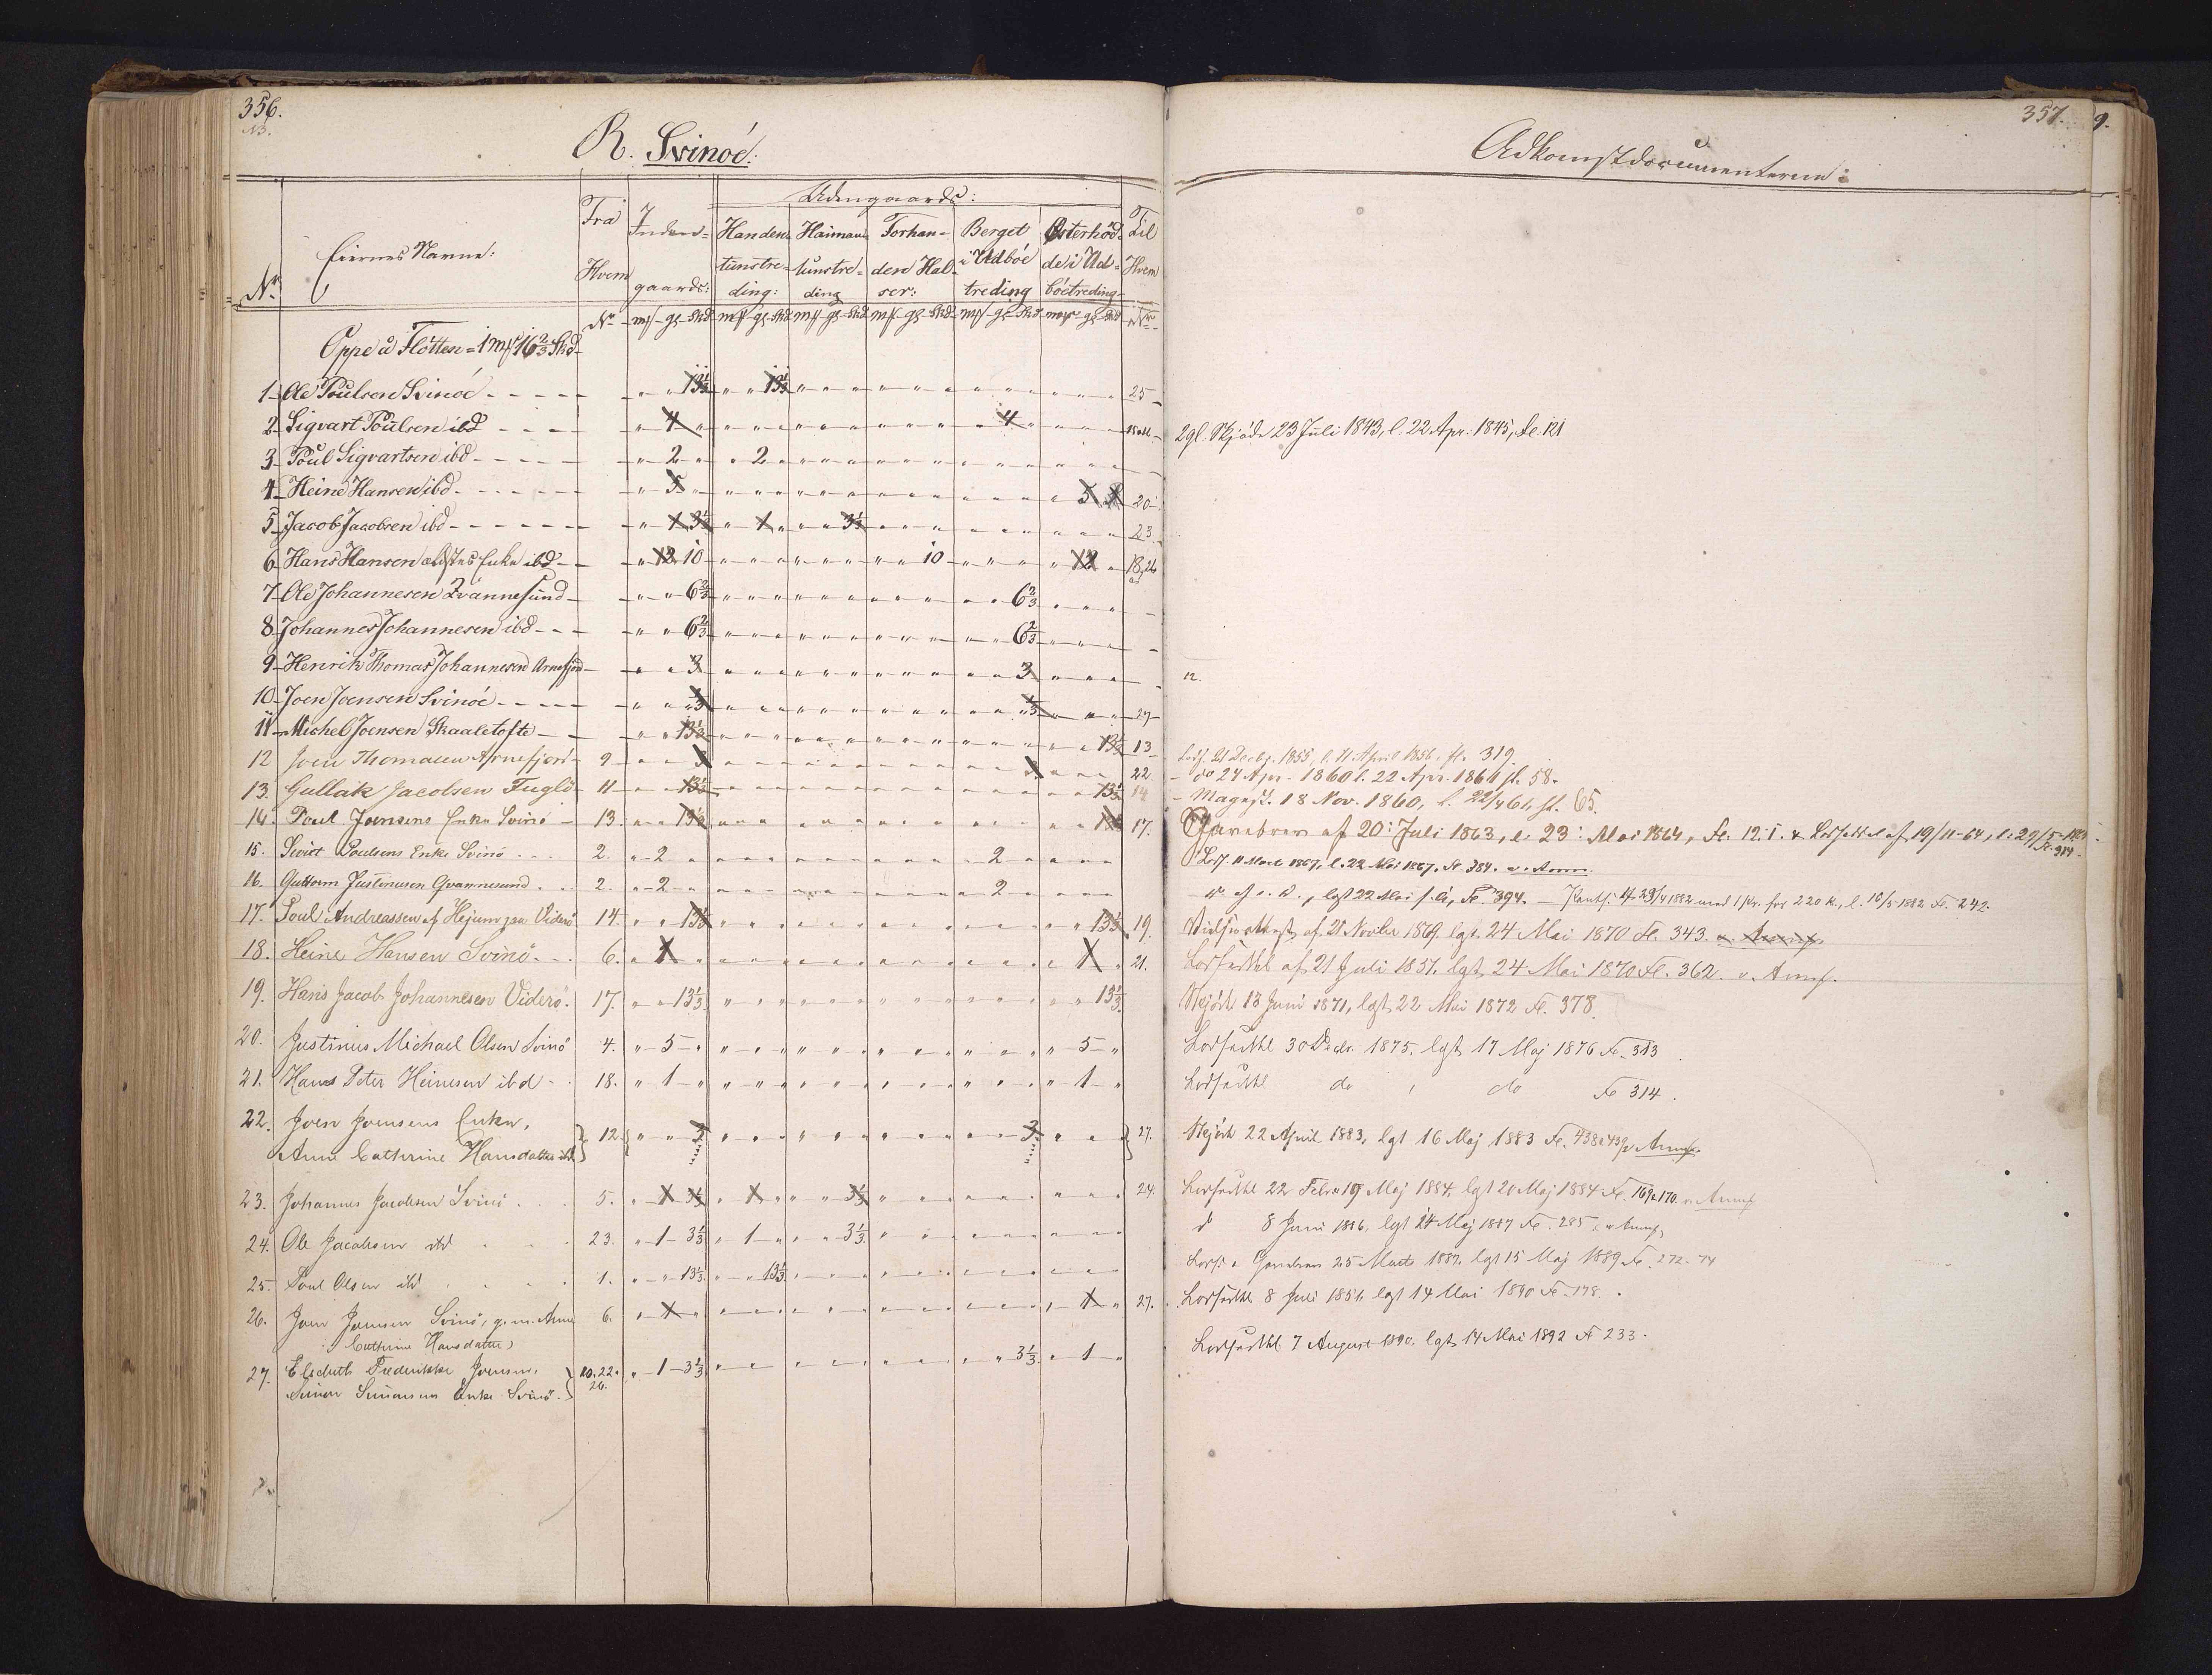 356.
R. Svinöe:
Eiernes Navne:
Fra Hvem
Indengaards:
Udengaards:
Handentunstreding:
Haimaruntunstreding
Forhandene Halser:
Berget i Udböe treding
Österhödde i Udböetreding
Til Hvem
No
Oppe å Flötten = 1 mk 16 2/3 Skd
1 Ole Poulsen Svinöe 13 1/3 13 1/3 25
2 Sigvart Poulsen ibd 4 4
3 Poul Sigvartsen ibd 2 2
4 Heine Hansen ibd 5 5 20
5 Jacob Jacobsen ibd 1 3 1/3 1 3 1/3 23
6 Hans Hansen ældstes Enke ibd 10 10 18, 26
7 Ole Johannesen Qvannesund 6 2/3 6 2/3
8 Johannes Johannesen ibd 6 2/3 6 2/3
9 Henrik Thomas Johannesen Arnefjord 3 3
10 Joen Joensen Svinöe 1/3 1/3 27
11 Michel Joensen Skaaletofte 13 1/3 13 1/3 13
12 Joen Thomasen Arnefjord 9 3 3 22
13. Gullak Jacobsen Fuglö 11 13 1/3 13 1/3 14
14. Poul Joensens Enke Svinö 13. 13 1/3 17.
15. Sivert Poulsens Enke Svinö 2. 2 2
16. Guttorm Justinusen Qvannesund 2. 2 2
17. Poul Andreassen af Hejum paa Viderö 14. 13 1/3 13 1/3 19.
18. Heine Hansen Svinö 6. 1 1 21.
19. Hans Jacob Johannesen Viderö. 17. 13 1/3 13 1/3
20. Justinus Michael Olsen Svinö 4. 5 5
21. Hans Peter Heinesen ibd 18. 1 1
22. Joen Joensens Enke,
Anne Cathrine Hansdatter ibd 12. 3 3 27.
23. Johannes Jacobsen Svinö 5. 1 3 1/3 1 3 1/3 24.
24. Ole Jacobsen ibd 23. 1 3 1/3 1 3 1/3
25. Poul Olsen ibd 1. 13 1/3 13 1/3
26. Joen Joensen Svinö, g. m. Anne
Cathrine Hansdatter 6. 1 1 27.
27. Elsebeth Frederikke Joensen,
Simon Simonsens Enke Svinö. 10. 22. 26. 1 3 1/3 3 1/3 1
357.
9.
Adkomstdocumenterne:
2 gl. Skjöde 23 Juli 1843, l. 22 Apr. 1845, Fl. 121
12.
21 Decbr. 1855, l. 11 April 1856, fl. 319.
do 24 Apr. 1860 l. 22 Apr. 1861 fl. 58.
Mageskj. 18 Nov. 1860, l. 22/4 61, fl. 65.
Gavebrev af 20: Juli 1863, l: 23: Mai 1864, Fl. 121. & Lodseddel af 19/11-64, l: 29/5
11 Marts 1867, l. 22 Mai 1867, Fl. 384. v. Anm.
lgst 22 Mai s. A, Fl. 394. 29/4 1882 med 1 Kr. for 220 K., l. 10/5 1882 Fl. 242.
af 21 Novbr 1869. lgst. 24 Mai 1870 Fl. 343.
Lodseddel af 21 Juli 1857. lgst. 24 Mai 1870 Fl. 362. v. Anm.
Skjöde 13 Juni 1871, lgst. 22 Mai 1872 Fl. 378.
Lodseddel 30 Decbr. 1875. lgst 17 Maj 1876 Fl. 313.
Lodseddel do, do Fl 314.
Skjöde 22 April 1883, lgt 16 Maj 1883 Fl. 438 & 439 v. Anm.
Lodseddel 22 Febr & 19 Maj 1884, lgt 20 Maj 1884 Fl. 169 & 170. v. Anm
d 8 Juni 1886, lgt 24 Maj 1887 Fl. 285. v Anm,
Lods. & Gavebrev 25 Marts 1887. lgt 15 Maj 1889 Fl. 272-74
Lodseddel 8 Juli 1856 lgt 14 Mai 1890 Fl. 178.
Lodseddel 7 August 1890. lgt. 14 Mai 1892 Fl 233.